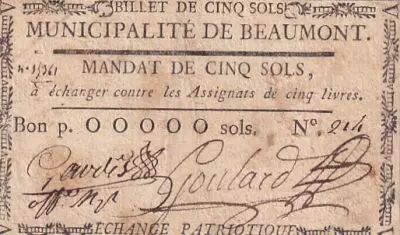 BILLET DE CINQ SOLS
MUNICIPALITÉ DE BEAUMONT.
MANDAT DE CINQ SOLS,
à échanger contre les Assignats de cinq livres.
Bon p. OOOOO sols. N°. 214
Goulard
ÉCHANGE PATRIOTIQUE